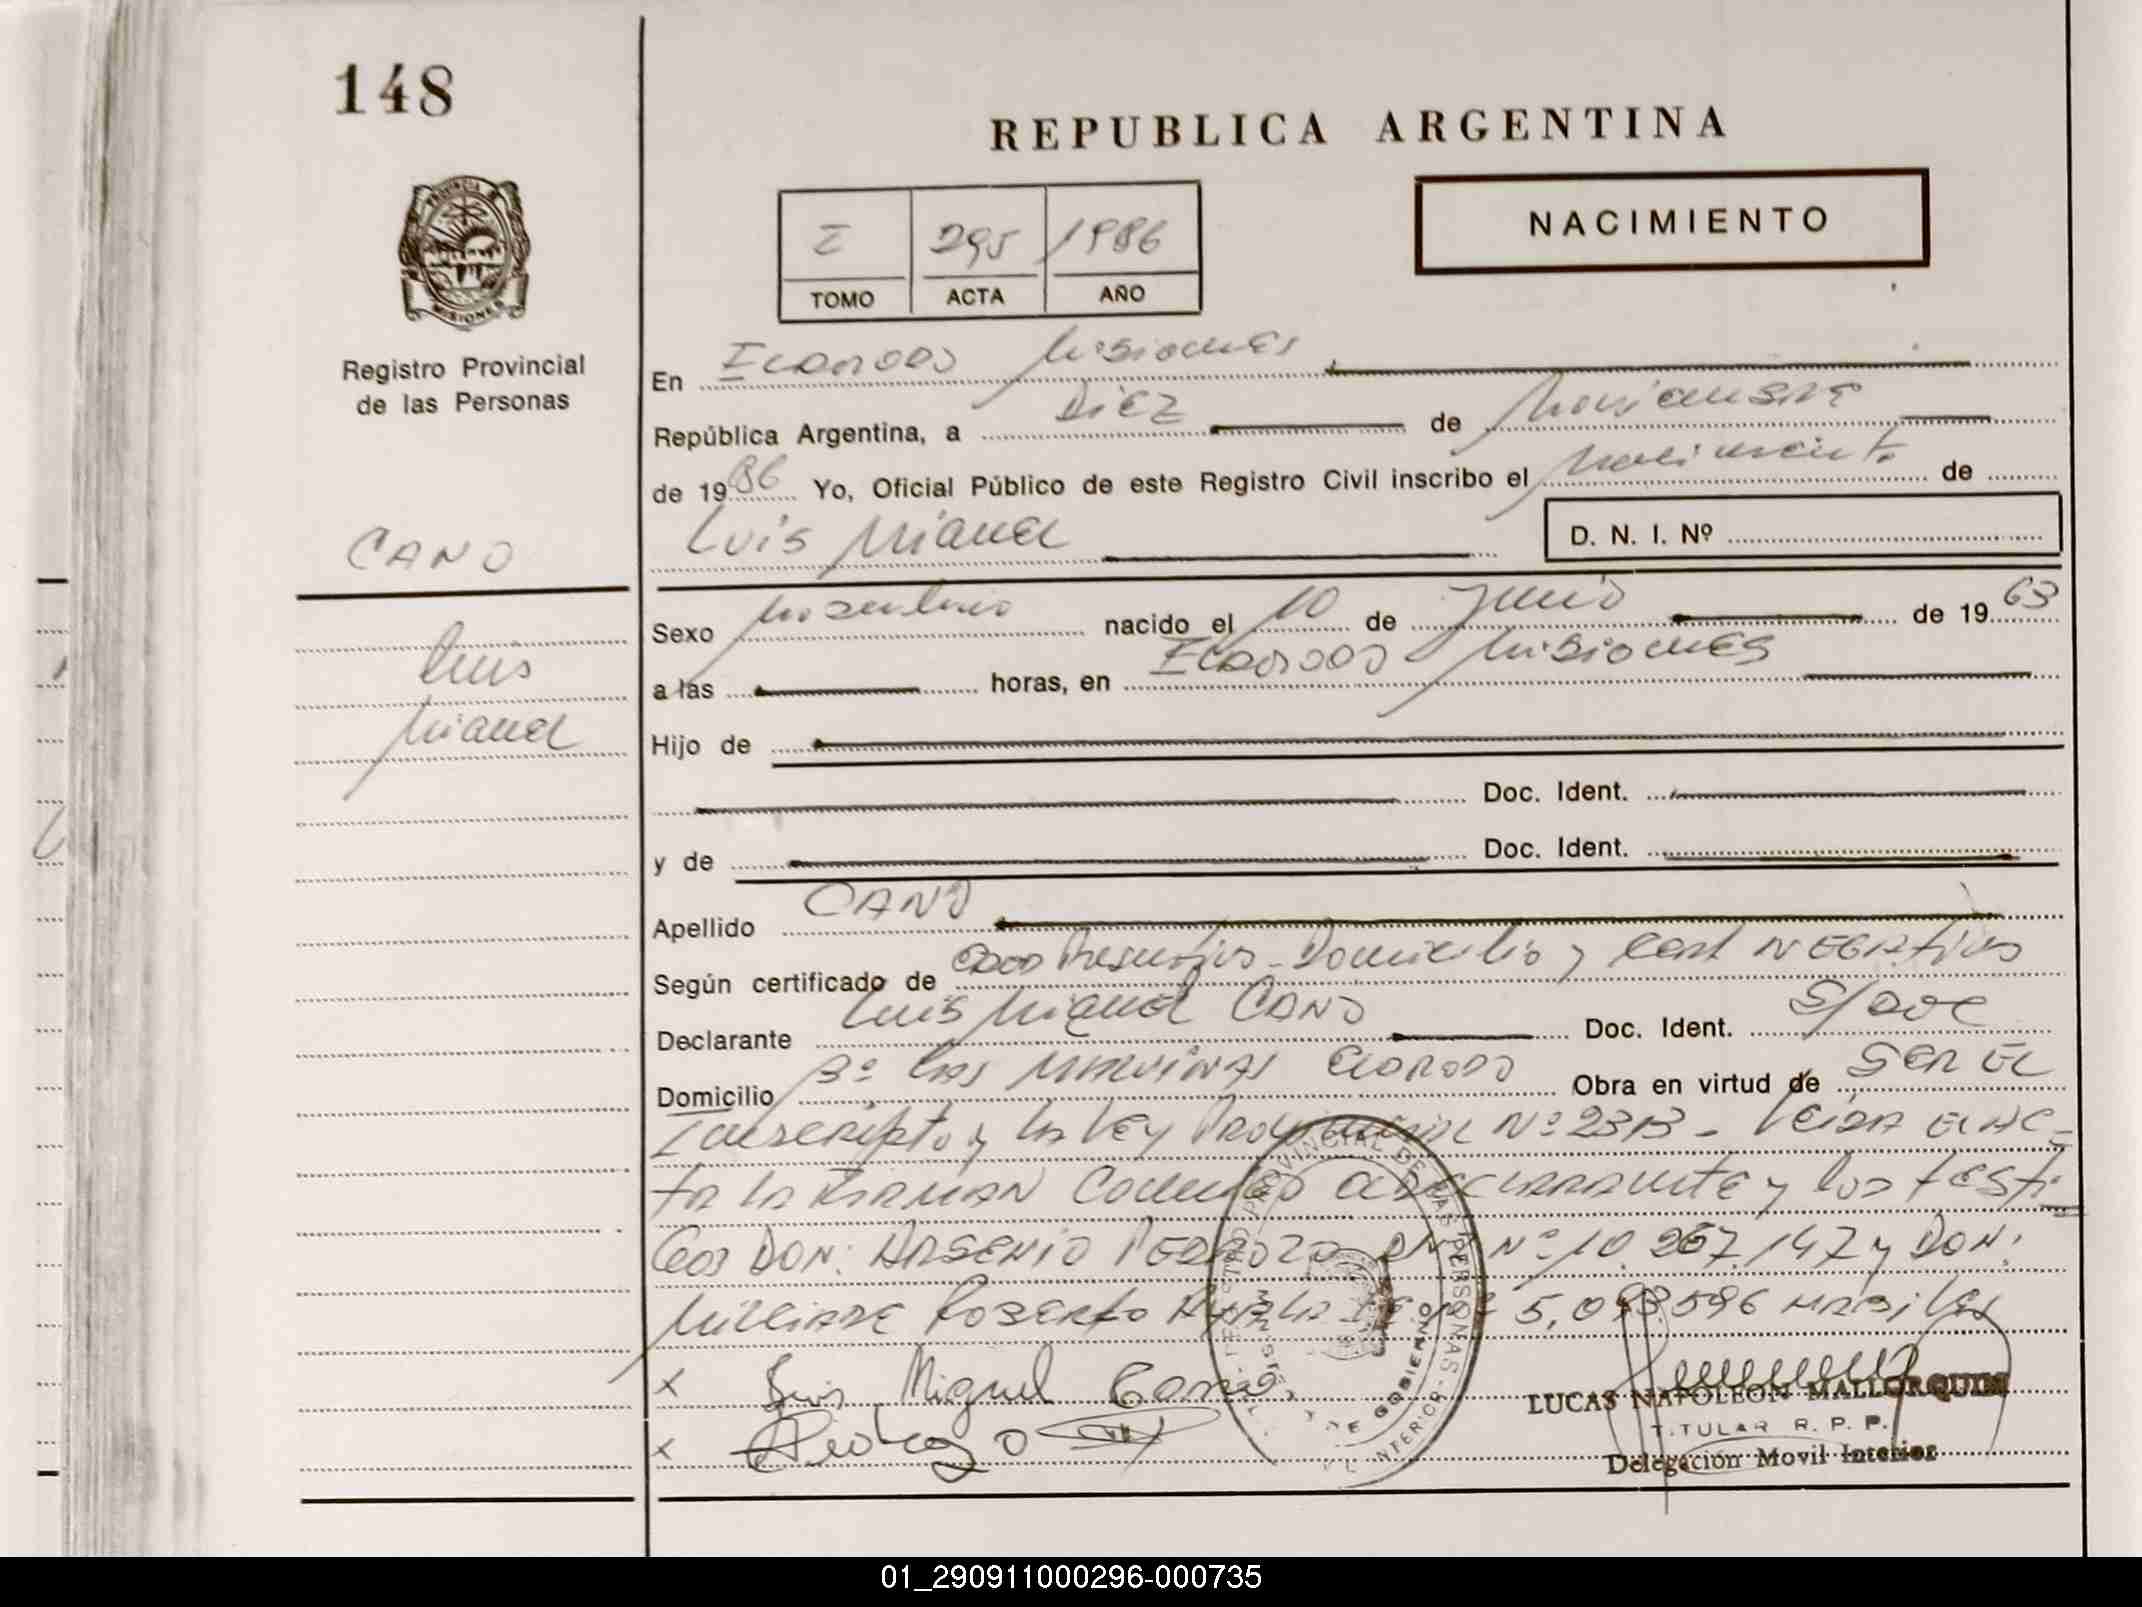 148
REPUBLICA ARGENTINA
PROVINCIA
MISIONES
Registro Provincial
de las Personas
I 295 1986
TOMO ACTA AÑO
NACIMIENTO
En Eldorado Misiones
República Argentina, a Diez de Noviembre
de 1986 Yo, Oficial Público de este Registro Civil inscribo el Nacimiento de
Luis Miguel D. N. I. Nº
CANO
Luis
Miguel
Sexo Masculino nacido el 10 de Junio de 1963
a las horas, en Eldorado Misiones
Hijo de
Doc. Ident.
y de Doc. Ident.
Apellido CANO
Según certificado de Domicilio y NEGATIVOS
Declarante Luis Miguel CANO Doc. Ident. S/Doc
Domicilio Bº Las MALVINAS ELDORADO Obra en virtud de SER EL
Inscripto y la Ley Provincial Nº 2313 - Leida el AC-
ta la FIRMAN Conmigo el DECLARANTE y los testi-
gos DON: ARSENIO PEDROZO DNI Nº 10.267.147 y DON:
ROBERTO Nº 5,093.596 HABILES
x Luis Miguel Cano.
x
REGISTRO PROVINCIAL DE LAS PERSONAS
DE GOBIERNO
INTERIOR
LUCAS NAPOLEON MALLORQUIN
TITULAR R. P. P.
Delegación Movil Interior
01_290911000296-000735